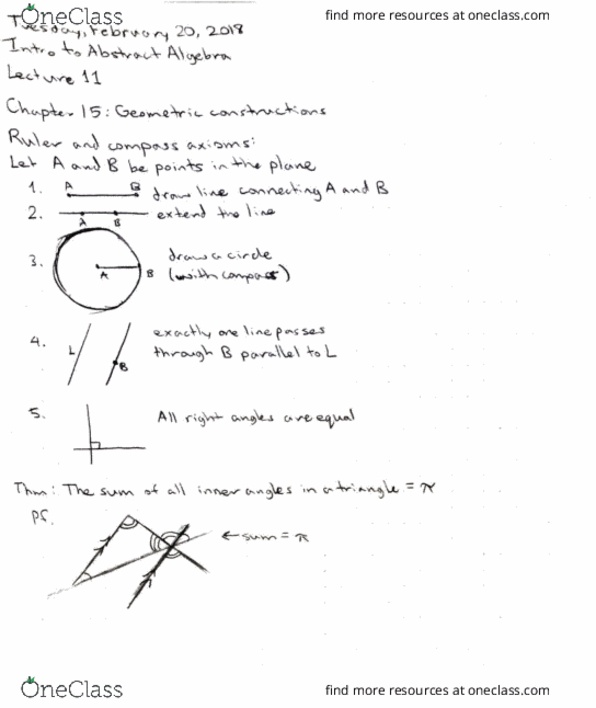 OneClass
find more resources at oneclass.com
Tuesday, February 20, 2018
Intro to Abstract Algebra
Lecture 11
Chapter 15: Geometric constructions
Ruler and compass axioms:
Let A and B be points in the plane
1. A B draw line connecting A and B
2. A B extend the line
3. A B draw a circle
(with compass)
4. L B exactly one line passes
through B parallel to L
5. All right angles are equal
Thm: The sum of all inner angles in a triangle = π
Pf.
← sum = π
OneClass
find more resources at oneclass.com